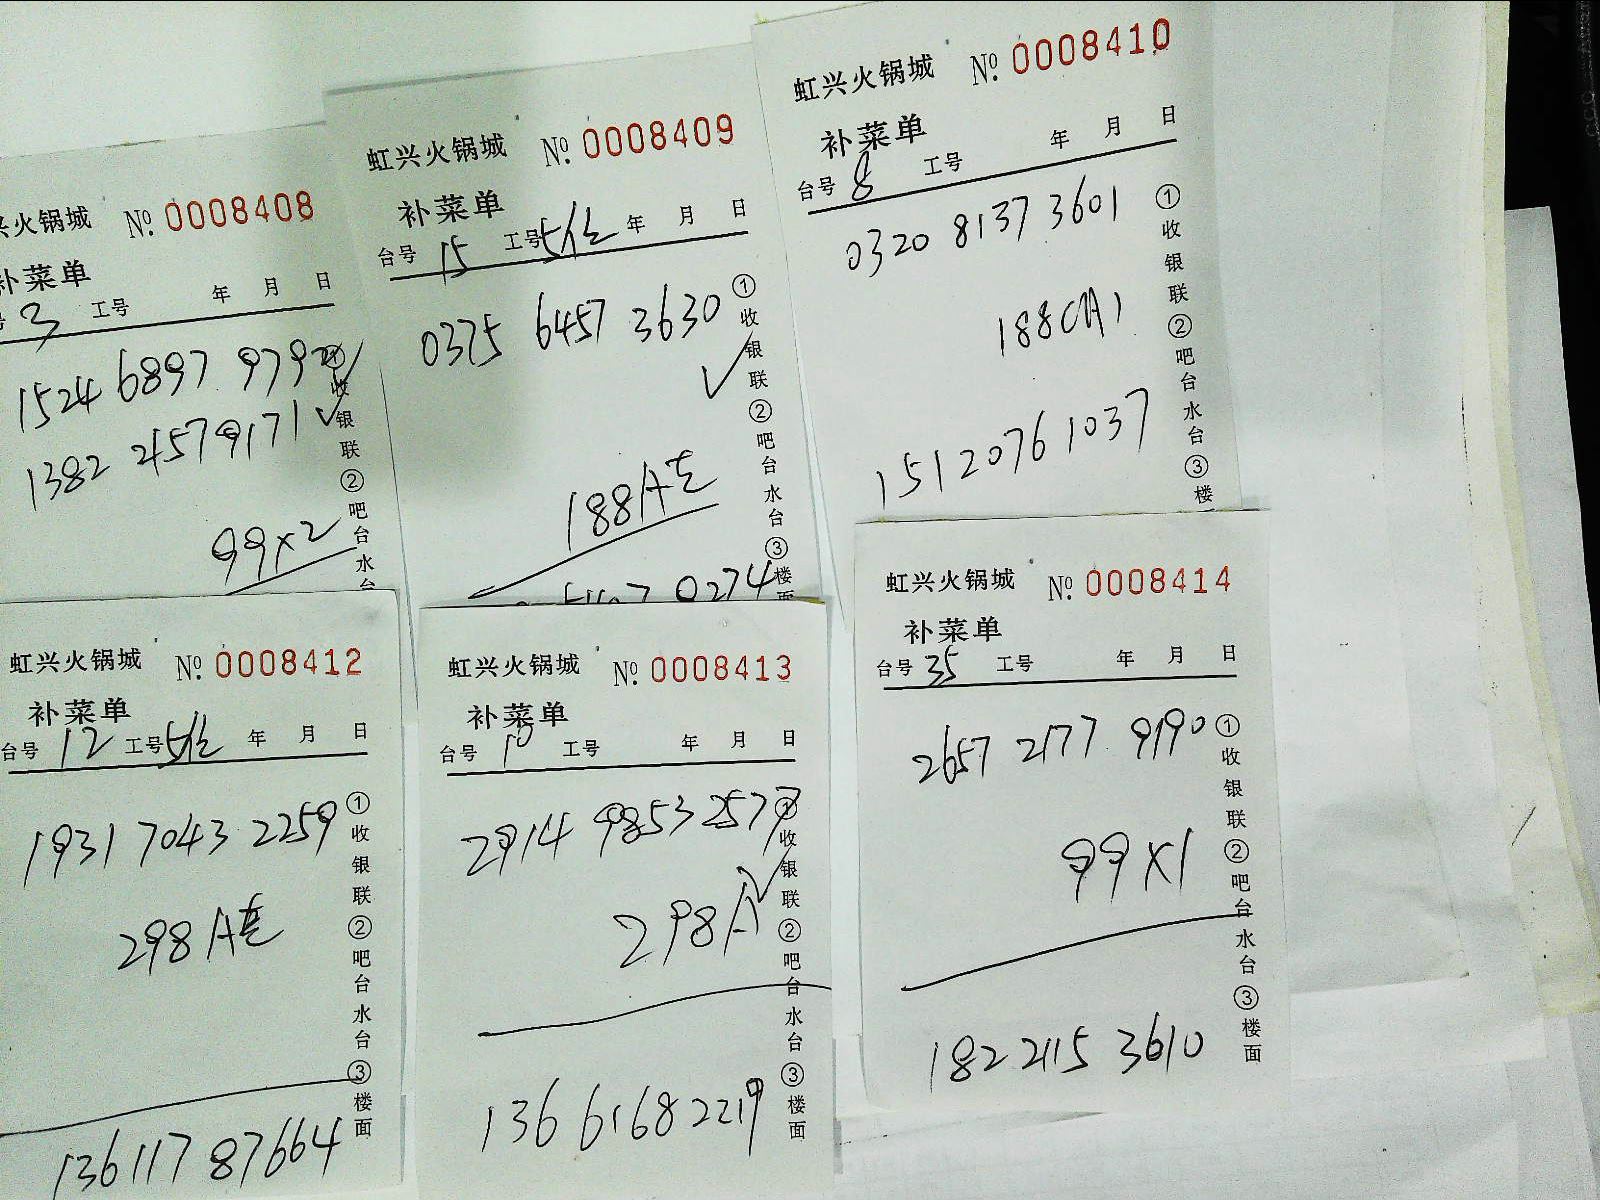 兴火锅城 No. 0008408
补菜单
3 工号 年 月 日
1524 6897 979
1382 24579171
99x2
①收银联②吧台水台
虹兴火锅城 No. 0008409
补菜单
台号 15 工号 年 月 日
0375 6457 3630
188A
0274
①收银联②吧台水台③楼面
虹兴火锅城 No. 0008410
补菜单
台号 8 工号 年 月 日
0320 8137 3601
188(A)
15120761037
①收银联②吧台水台③楼
虹兴火锅城 No. 0008412
补菜单
台号 12 工号 年 月 日
1931 7043 2259
298A
13611787664
①收银联②吧台水台③楼面
虹兴火锅城 No. 0008413
补菜单
台号 10 工号 年 月 日
2914 9853 2577
298A
136 6168 2219
①收银联②吧台水台③楼面
虹兴火锅城 No. 0008414
补菜单
台号 35 工号 年 月 日
2657 2177 9190
99x1
182 2115 3610
①收银联②吧台水台③楼面